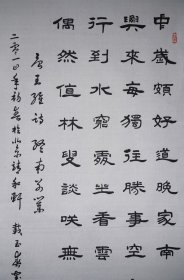 中歲頗好道晚家南
興來每獨往勝事空
行到水窮處坐看雲
偶然值林叟談咲無
唐王維詩 終南別業
二零一〇年 於北京 軒 戴玉